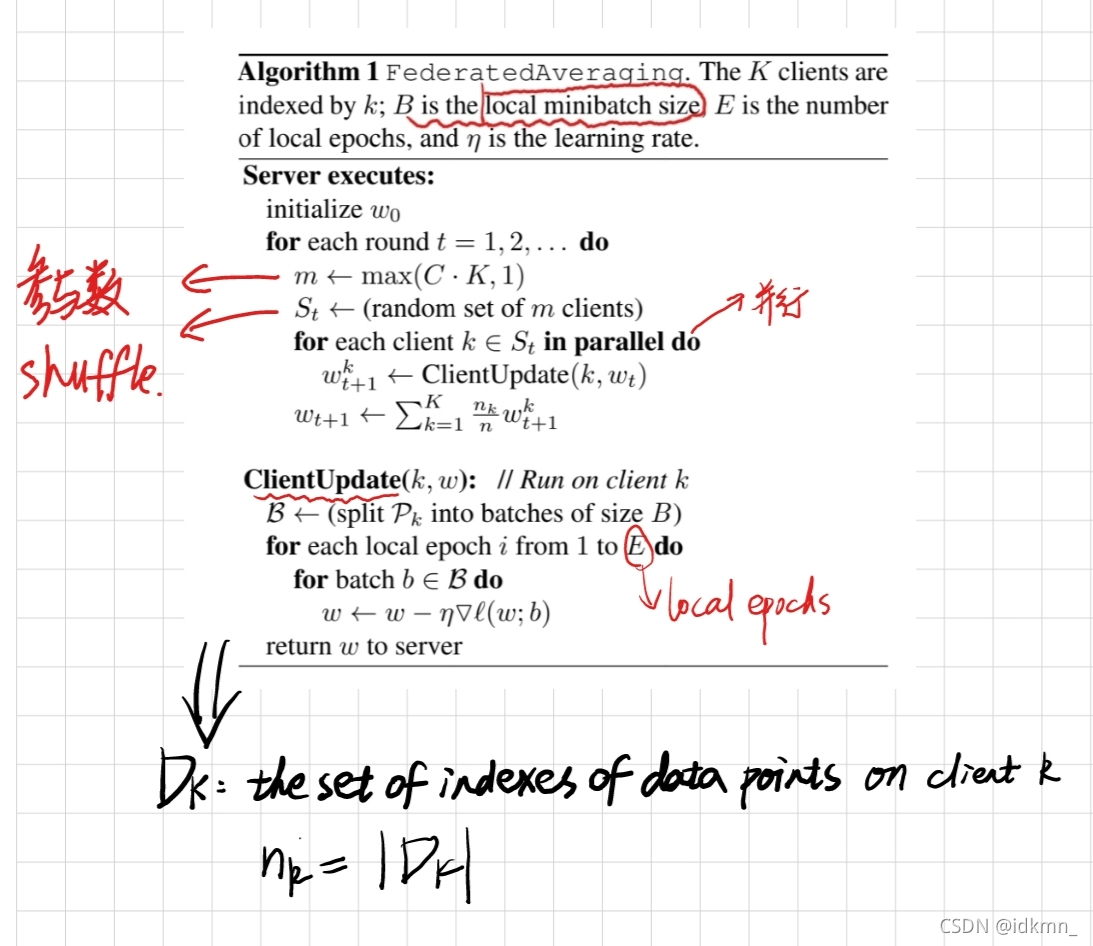 Algorithm 1 FederatedAveraging. The K clients are
indexed by k; B is the local minibatch size, E is the number
of local epochs, and η is the learning rate.
Server executes:
initialize w₀
for each round t = 1, 2, . . . do
m ← max(C · K, 1)
参与数
Sₜ ← (random set of m clients)
shuffle.
for each client k ∈ Sₜ in parallel do
并行
w_{t+1}^k ← ClientUpdate(k, wₜ)
w_{t+1} ← ∑_{k=1}^K \frac{n_k}{n} w_{t+1}^k
ClientUpdate(k, w): // Run on client k
ℬ ← (split 𝒫ₖ into batches of size B)
for each local epoch i from 1 to E do
local epochs
for batch b ∈ ℬ do
w ← w − η∇ℓ(w; b)
return w to server
Dₖ: the set of indexes of data points on client k
nₖ = |Dₖ|
CSDN @idkmn_